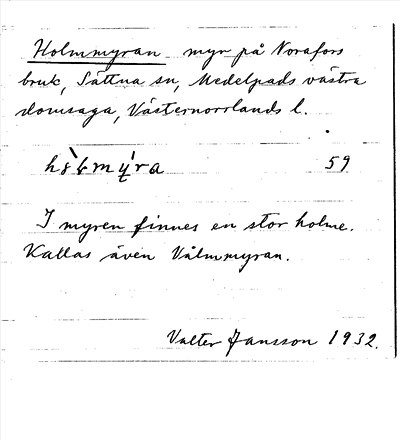 Holmmyran myr på Norafors
bruk, Sättna sn, Medelpads västra
domsaga, Västernorrlands l.
59.
I myren finnes en stor holme.
Kallas även Vålmmyran.
Valter Jansson 1932.